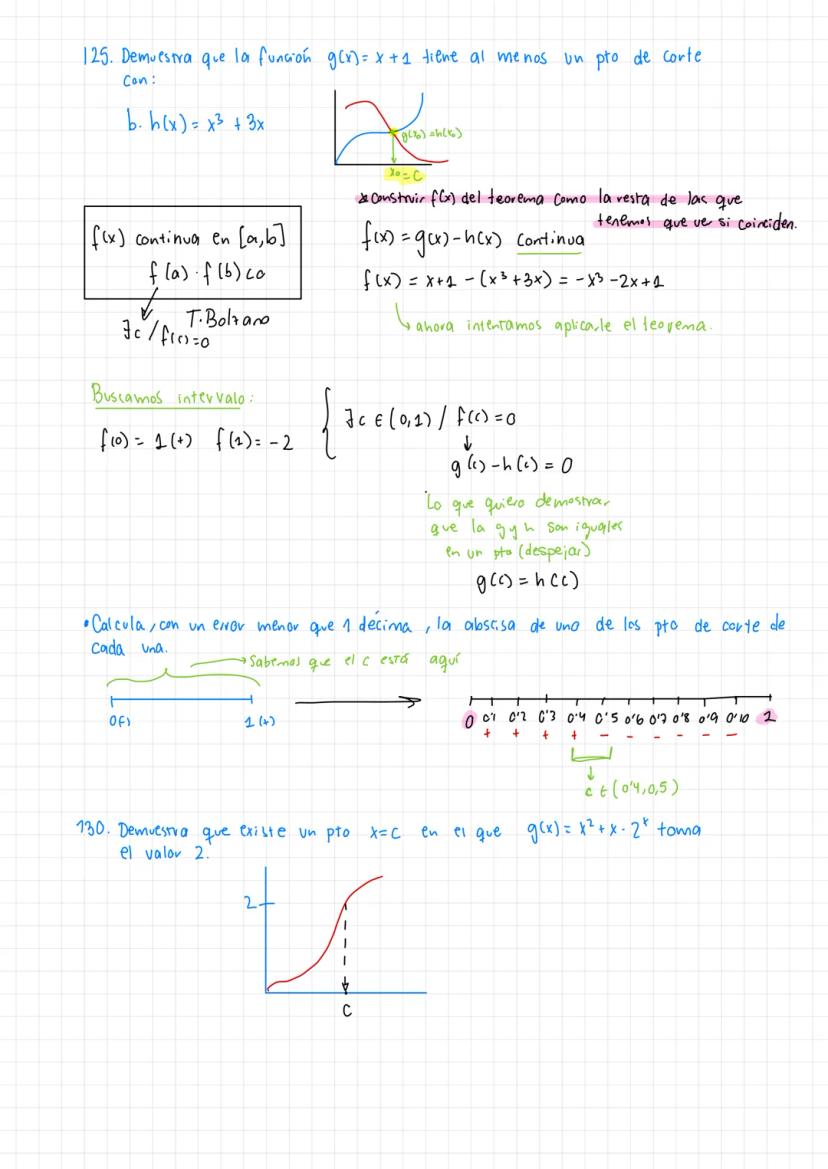 125. Demuestra que la función g(x)= x+1 tiene al menos un pto de corte
con:
b. h(x) = x³ + 3x
g(x₀)=h(x₀)
x₀=C
* Construir f(x) del teorema como la resta de las que
tenemos que ve si coinciden.
f(x) continua en [a,b]
f(a)·f(b)<0
T. Bolzano
∃c / f(c)=0
f(x) = g(x)-h(x) continua
f(x) = x+1 - (x³+3x) = -x³-2x+1
ahora intentamos aplicarle el teorema.
Buscamos intervalo:
f(0) = 1(+) f(1)= -2
∃c ∈ (0,1) / f(c) =0
g(c)-h(c) = 0
Lo que quiero demostrar
que la g y h son iguales
en un pto (despejar)
g(c) = h(c)
•Calcula, con un error menor que 1 décima, la abscisa de uno de los pto de corte de
cada una.
Sabemos que el c está aquí
0(-) 1(+)
0 0'1 0'2 0'3 0'4 0'5 0'6 0'7 0'8 0'9 0'10 1
+ + + + - - - - - -
c ∈ (0'4,0,5)
130. Demuestra que existe un pto x=c en el que g(x)= x²+x·2ˣ toma
el valor 2.
2
C